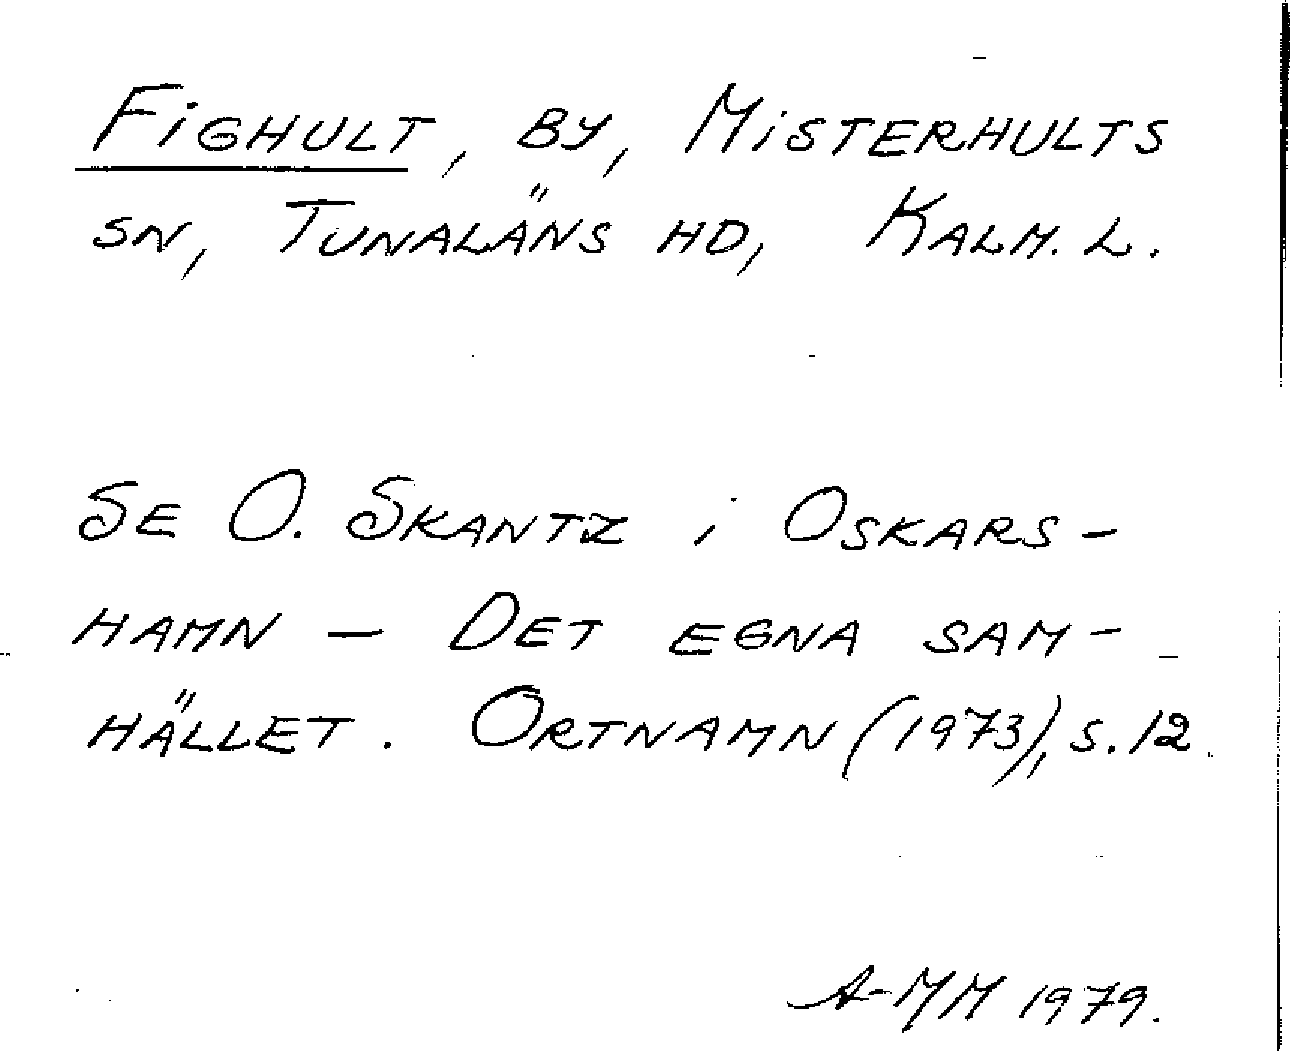 Fighult, by, Misterhults
sn, Tunaläns hd, Kalm. l.
Se O. Skantz i Oskars-
hamn – Det egna sam-
hället. Ortnamn (1973), s. 12.
A-MM 1979.